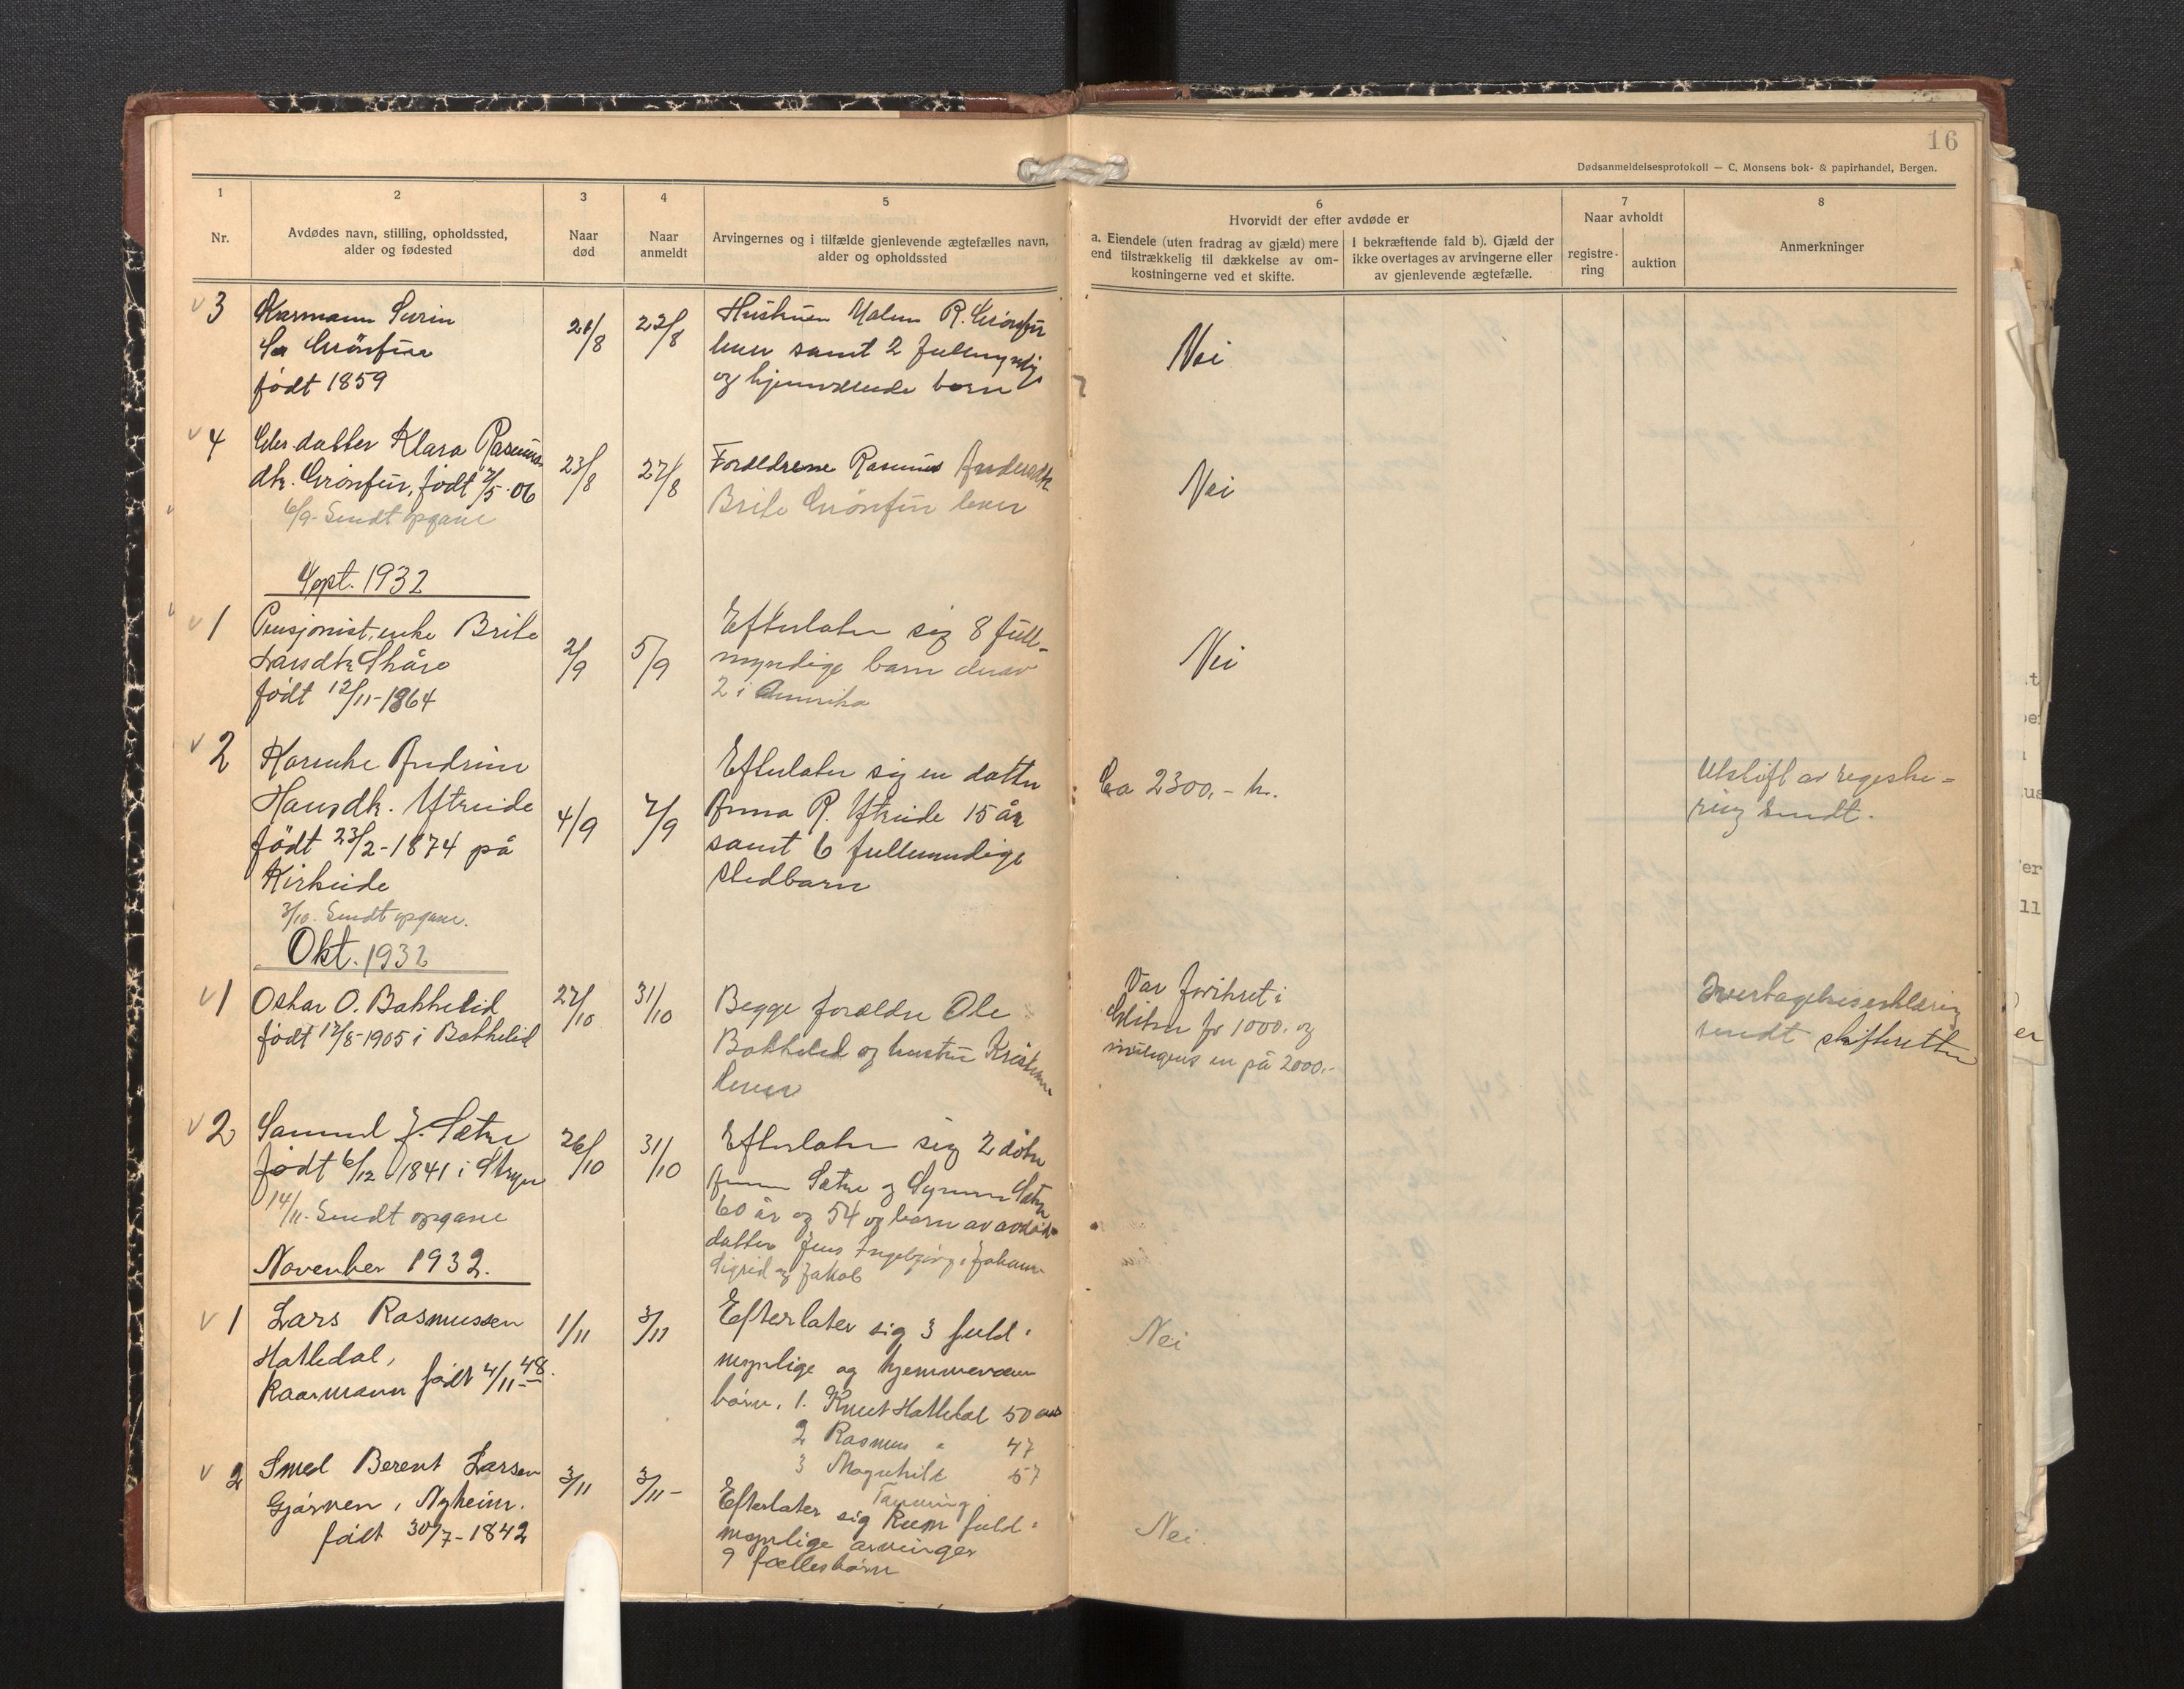 16
Dødsanmeldelsesprotokoll — C. Monsens bok- & papirhandel, Bergen.
1
Nr.
2
Avdødes navn, stilling, opholdssted,
alder og fødested
3
Naar
død
4
Naar
anmeldt
5
Arvingernes og i tilfælde gjenlevende ægtefælles navn,
alder og opholdssted
6
Hvorvidt der efter avdøde er
a. Eiendele (uten fradrag av gjæld) mere
end tilstrækkelig til dækkelse av om-
kostningerne ved et skifte.
I bekræftende fald b). Gjæld der
ikke overtages av arvingerne eller
av gjenlevende ægtefælle.
7
Naar avholdt
registre-
ring
auktion
8
Anmerkninger
v 3
Grönfur
født 1859
21/8
22/8
R. Grönfur
lever samt 2 fullmyndig
og hjemværende born
Nei
v 4
datter Klara Rasmus
dtr. Grönfur, født /5-06
6/9- Sendt opgave
23/8
27/8
Foreldrene Rasmus
Brite Grönfur lever
Nei
Sept. 1932
v 1
Pensjonist, enke Brite
Larsdtr. Skåre
født 12/11-1864
2/9
5/9
Efterlater sig 8 full-
myndige barn derav
2 i Amerika
Nei
v 2
Karenke Andrine
Hansdtr. Ytreide
født 23/2-1874 på
Kirkeide
3/10. Sendt opgave.
4/9
7/9
Efterlater sig en datter
Anna R. Ytreide 15 år
samt 6 fullmundige
stedbarn
Ca 2300,- kr.
Utskrift av regestre-
ring sendt.
Okt. 1932
v 1
Oskar O. Bakkelid
født 12/8-1905 i Bakkelid
27/10
31/10
Begge foreldre Ole
Bakkelid og hustru Kristine
lever
Var forikret i
for 1000. og
en på 2000.-
Overtagelseserklæring
sendt skifteretten
v 2
Samuel J. Sætre
født 6/12 1841 i Stryn
14/11. Sendt opgave
26/10
31/10
Efterlater sig 2 døtre
Sætre og Synnøve Sætre
60 år og 54 og barn av avdøde
datter Jens Ingebjørg, Johann
Sigrid og Jakob
November 1932.
v 1
Lars Rasmussen
Hatledal,
Kaarmann født 4/11-48.
1/11
3/11
Efterlater sig 3 fuld-
myndige og hjemmevær
børn. 1. Knut Hatledal 50 aar
2 Rasmus " 47
3 Magnhild 57
Nei
v 2
Smed Berent Larsen
Gjørven, Nyheim.
født 30/7-1842
3/11
3/11-
Efterlater sig kun fuld-
myndige arvinger
9 fællesbørn
Nei.